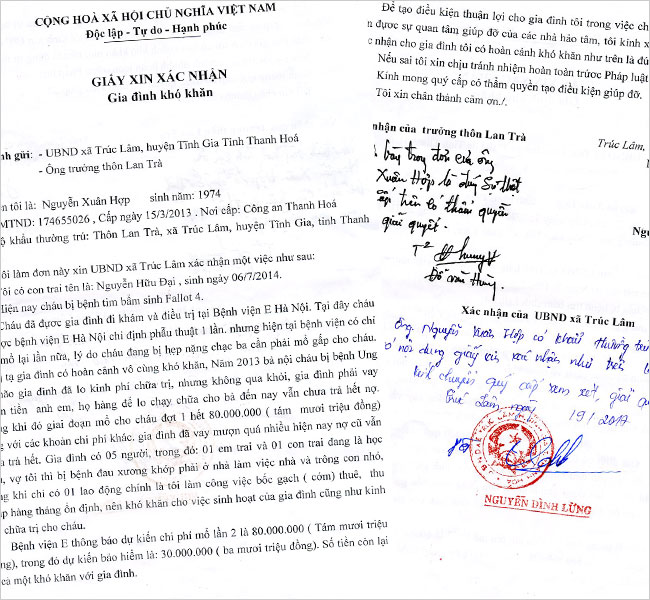 CỘNG HOÀ XÃ HỘI CHỦ NGHĨA VIỆT NAM
Độc lập - Tự do - Hạnh phúc
GIẤY XIN XÁC NHẬN
Gia đình khó khăn
nh gửi: - UBND xã Trúc Lâm, huyện Tĩnh Gia Tỉnh Thanh Hoá
- Ông trưởng thôn Lan Trà
n tôi là: Nguyễn Xuân Hợp sinh năm: 1974
MTND: 174655026 , Cấp ngày 15/3/2013 . Nơi cấp: Công an Thanh Hoá
ộ khẩu thường trú: Thôn Lan Trà, xã Trúc Lâm, huyện Tĩnh Gia, tỉnh Thanh
ôi làm đơn này xin UBND xã Trúc Lâm xác nhận một việc như sau:
Tôi có con trai tên là: Nguyễn Hữu Đại , sinh ngày 06/7/2014.
Hiện nay cháu bị bệnh tim bẩm sinh Fallot 4.
Cháu đã được gia đình đi khám và điều trị tại Bệnh viện E Hà Nội. Tại đây cháu
ợc bệnh viện E Hà Nội chỉ định phẫu thuật 1 lần. nhưng hiện tại bệnh viện có chỉ
mổ lại lần nữa, lý do cháu đang bị hẹp nặng chạc ba cần phải mổ gấp cho cháu.
tạ gia đình có hoàn cảnh vô cùng khó khăn, Năm 2013 bà nội cháu bị bệnh Ung
não gia đình đã lo kinh phí chữa trị, nhưng không qua khỏi, gia đình phải vay
n tiền anh em, họ hàng để lo chạy chữa cho bà đến nay vẫn chưa trả hết nợ.
ng khi đó giai đoạn mổ cho cháu đợt 1 hết 80.000.000 ( tám mươi triệu đồng)
g với các khoản chi phí khác. gia đình đã vay mượn quá nhiều hiện nay nợ cũ vẫn
a trả hết. Gia đình có 05 người, trong đó: 01 em trai và 01 con trai đang là học
, vợ tôi thì bị bệnh đau xương khớp phải ở nhà làm việc nhà và trông con nhỏ,
ng khi chỉ có 01 lao động chính là tôi làm công việc bốc gạch ( cóm) thuê, thu
p hàng tháng ổn định, nên khó khăn cho việc sinh hoạt của gia đình cũng như kinh
chữa trị cho cháu.
Bệnh viện E thông báo dự kiến chi phí mổ lần 2 là 80.000.000 ( Tám mươi triệu
ng), trong đó dự kiến bảo hiểm là: 30.000.000 ( ba mươi triệu đồng). Số tiền còn lại
cả một khó khăn với gia đình.
Để tạo điều kiện thuận lợi cho gia đình tôi trong việc ch
n được sự quan tâm giúp đỡ của các nhà hảo tâm, tôi kính x
c nhận cho gia đình tôi có hoàn cảnh khó khăn như trên là đú
Nếu sai tôi xin chịu tránh nhiệm hoàn toàn trước Pháp luật
Kính mong quý cấp có thẩm quyền tạo điều kiện giúp đỡ.
Tôi xin chân thành cảm ơn./.
nhận của trưởng thôn Lan Trà Trúc Lâm,
trong đơn của ông
Xuân Hợp là đúng sự thật
trên có thẩm quyền
giải quyết.
Ng
Đỗ văn Hùng
Xác nhận của UBND xã Trúc Lâm
Ông Nguyễn Xuân Hợp có khẩu thường trú
nội dung giấy xin xác nhận như trên là
chuyển quý cấp xem xét, giải
Trúc Lâm, ngày 19/1/2017
NGUYỄN ĐÌNH LỪNG